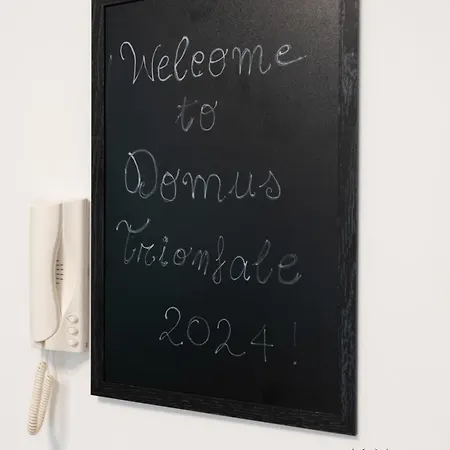 Welcome
to
Domus
Trionfale
2024!